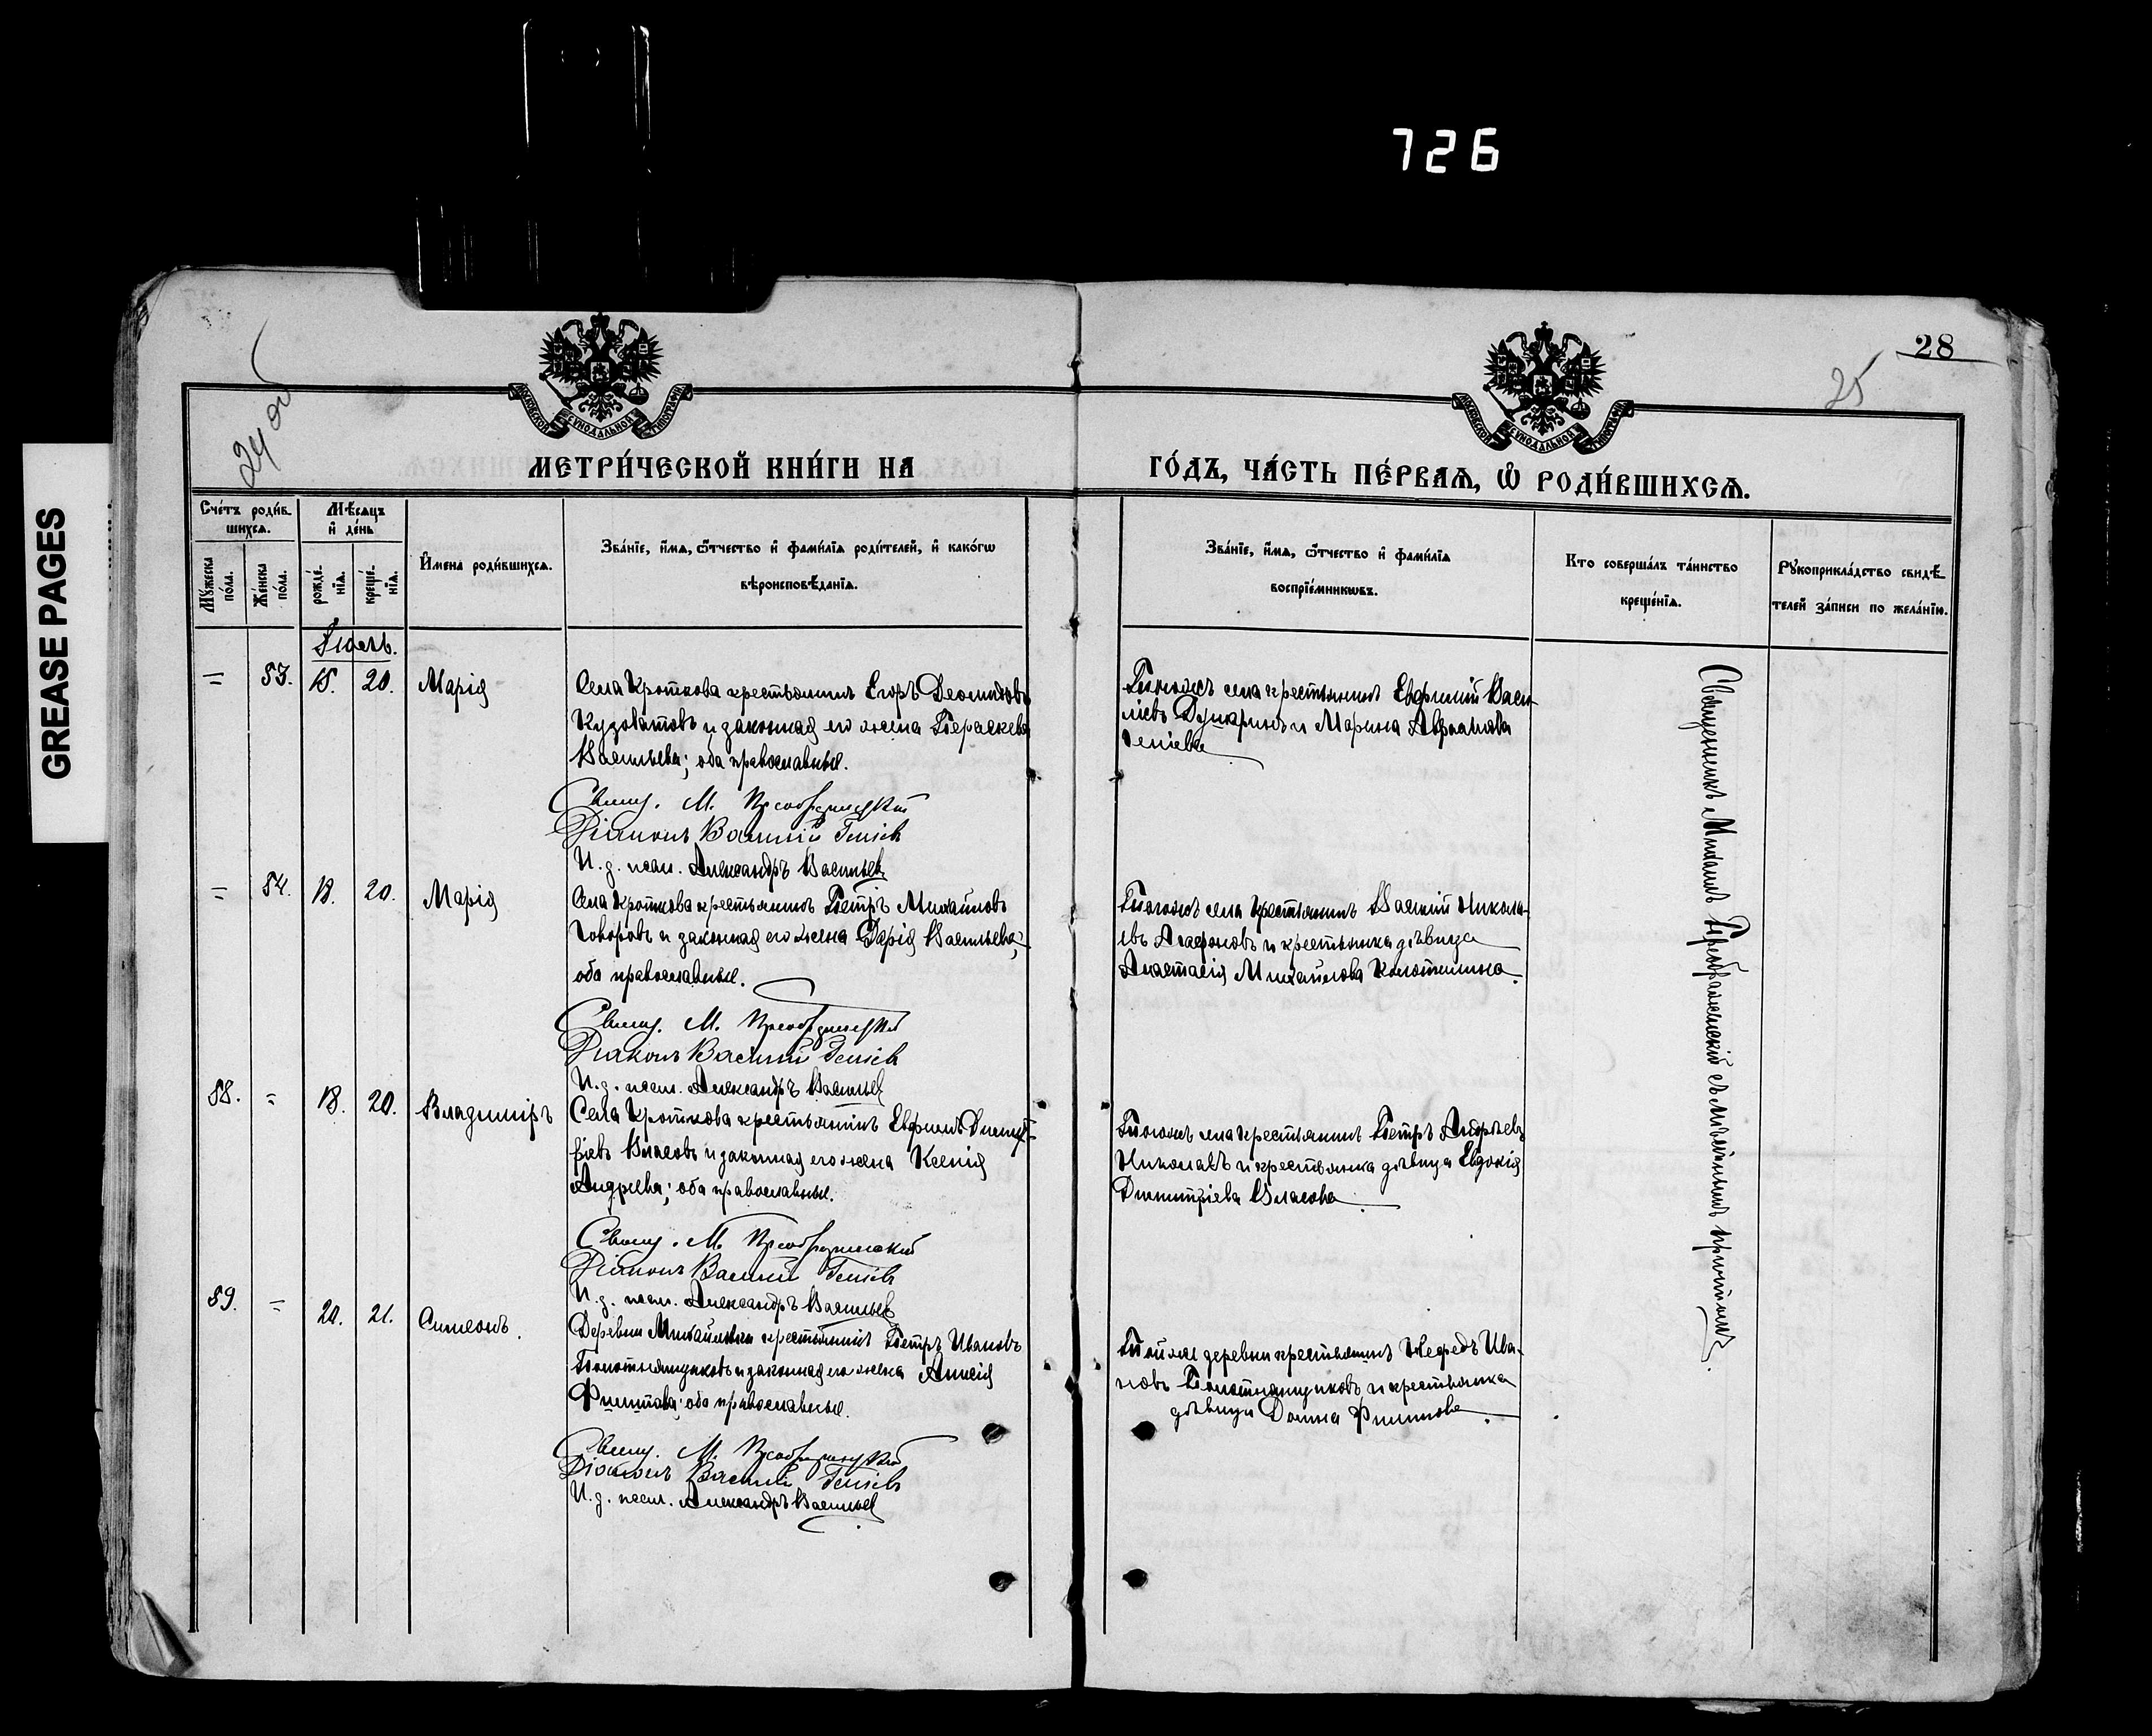 726
GREASE PAGES
28
25
МОСКОВСКОЙ СУНОДАЛЬНОЙ ТИПОГРАФІИ
МОСКОВСКОЙ СУНОДАЛЬНОЙ ТИПОГРАФІИ
МЕТРИ́ЧЕСКОЙ КНИ́ГИ НА
ГО́ДЪ, ЧА́СТЬ ПЕ́РВАѦ, Ѡ҆ РОДИ́ВШИХСѦ.
Сче́тъ роди́в-
шихсѧ.
Мꙋ́жеска по́ла.
Же́нска по́ла.
Мѣ́сѧцъ
и҆ де́нь
рожде́-нїѧ.
креще́-нїѧ.
И҆мена роди́вшихсѧ.
Зва́нїе, и҆́мѧ, ѻ҆́тчество и҆ фами́лїѧ роди́телей, и҆ како́гѡ
вѣроисповѣ́данїѧ.
Зва́нїе, и҆́мѧ, ѻ҆́тчество и҆ фами́лїѧ
воспрїе́мникѡвъ.
Кто соверша́лъ та́инство
креще́нїѧ.
Рꙋкоприкла́дство свидѣ́-
телей за́писи по жела́нїю.
Іюль.
= 83. 15. 20. Марія
Села Кроткова крестьянинъ Егоръ Леонидовъ
Кузоватовъ и законная его жена Параскева
Васильева; оба православные.
Свящ. М. Преображенскій
Діаконъ Василій Геніевъ
И. д. псал. Александръ Васильев
Тогожъ села крестьянинъ Евфимій Васи-
ліевъ Душаринъ и Марина Аврамова
Геніева
= 84. 18. 20. Марія
Села Кроткова крестьянинъ Петръ Михайловъ
Говоровъ и законная его жена Дарія Васильева;
оба православные.
Свящ. М. Преображенскій
Діаконъ Василій Геніевъ
И. д. псал. Александръ Васильев
Тогожъ села крестьянинъ Василій Никола-
евъ Агафоновъ и крестьянка дѣвица
Анастасія Михайлова
88. = 18. 20. Владиміръ
Села Кроткова крестьянинъ Евфимъ Димит-
ріевъ Власовъ и законная его жена Ксенія
Андреева; оба православные.
Свящ. М. Преображенскій
Діаконъ Василій Геніевъ
И. д. псал. Александръ Васильев
Тогожъ села крестьянинъ Петръ Андреевъ
и крестьянка дѣвица Евдокія
Димитріева Власова
89. = 20. 21. Симеонъ.
Деревни Михайловки крестьянинъ Петръ Ивановъ
Полотнянщиковъ и законная его жена Анисія
Филиппова; оба православные.
Свящ. М. Преображенскій
Діаконъ Василій Геніевъ
И. д. псал. Александръ Васильев
Той же деревни крестьянинъ Нефедъ Ива-
новъ Полотнянщиковъ и крестьянка
дѣвица Домна Филипова
Священникъ Михаилъ Преображенскій съ мѣстнымъ причтомъ.